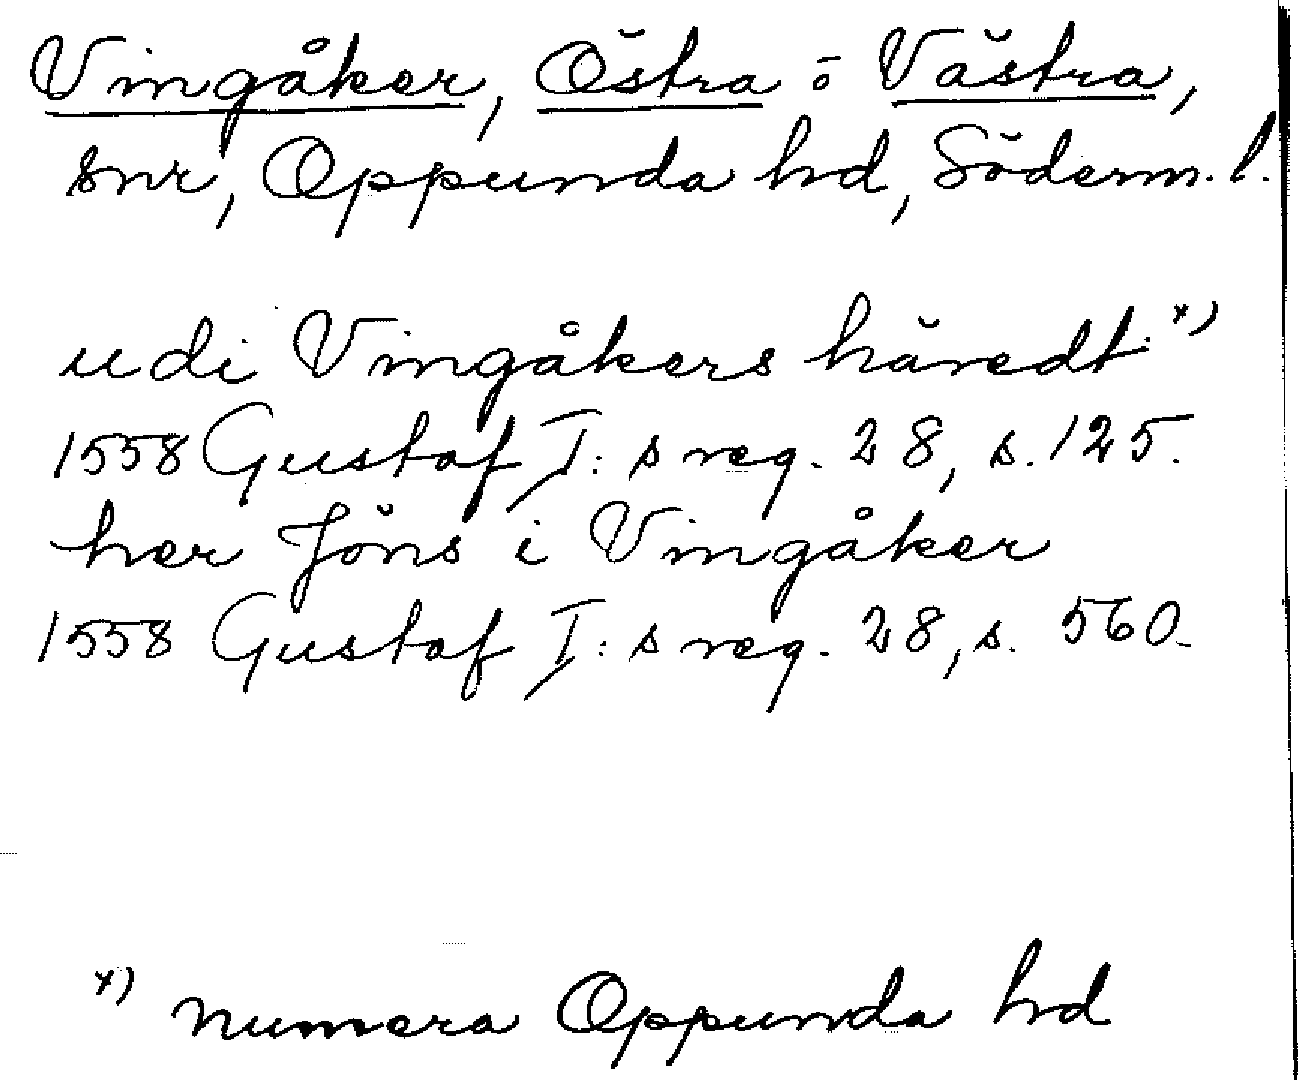 Vingåker, Östra o Västra,
snr, Oppunda hd, Söderm. l.
udi Vingåkers häredt *)
1558 Gustaf I:s reg. 28, s. 125.
her Jöns i Vingåker
1558 Gustaf I:s reg. 28, s. 560.
*) numera Oppunda hd